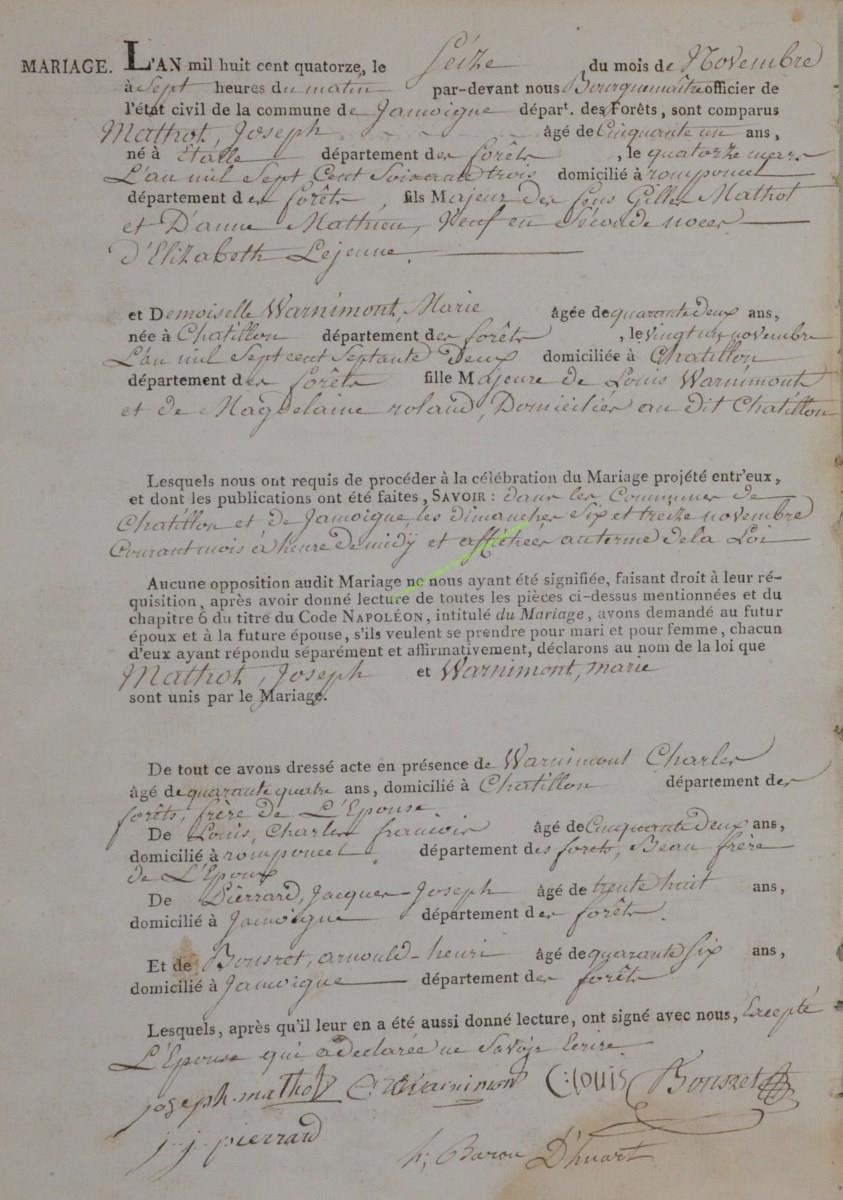 MARIAGE. L'AN mil huit cent quatorze, le Seize du mois de Novembre
à Sept heures du matin par-devant nous Bourguemaître officier de
l'état civil de la commune de Jamoigne départ. des Forêts, sont comparus
Mathot, Joseph âgé de Cinquante un ans,
né à Etalle département des forêts, le quatorze mars
L'an mil Sept Cent Soixante trois domicilié à romponcel
département des forêts, fils Majeur des feus Gilles Mathot
et D'anne Mathieu, Veuf en Séconde noces
D'Elizabeth Lejeune.
et Demoiselle Warnimont, Marie âgée de quarante deux ans,
née à Chatillon département des forêts, le vingt un novembre
L'an mil Sept cent Septante Deux domiciliée à Chatillon
département des forêts fille Majeure de Louis Warnimont
et de Magdelaine roland, Domiciliés au dit Chatillon
Lesquels nous ont requis de procéder à la célébration du Mariage projété entr'eux,
et dont les publications ont été faites, SAVOIR : dans les Communes de
Chatillon et de Jamoigne les dimanches Six et treize novembre
Courant mois à heure de midÿ et affichées au terme de la Loi
Aucune opposition audit Mariage ne nous ayant été signifiée, faisant droit à leur ré-
quisition, après avoir donné lecture de toutes les pièces ci-dessus mentionnées et du
chapitre 6 du titre du Code NAPOLÉON, intitulé du Mariage, avons demandé au futur
époux et à la future épouse, s'ils veulent se prendre pour mari et pour femme, chacun
d'eux ayant répondu séparément et affirmativement, déclarons au nom de la loi que
Mathot, Joseph et Warnimont, marie
sont unis par le Mariage.
De tout ce avons dressé acte en présence de Warnimont Charles
âgé de quarante quatre ans, domicilié à Chatillon département des
forêts, frère de L'Epouse.
De Louis, Charles françois âgé de Cinquante Deux ans,
domicilié à romponcel département des forets, Beau frère
de L'Epoux
De Pierrard, Jacques-Joseph âgé de trente huit ans,
domicilié à Jamoigne département des forêts.
Et de Bousret, arnould-henri âgé de quarante Six ans,
domicilié à Jamoigne département des forêts
Lesquels, après qu'il leur en a été aussi donné lecture, ont signé avec nous, Excepté
L'Epouse qui a declarée ne Savoir Ecrire.
joseph-mathot C Warnimon C: Louis Bousret
j-j-pierrard
h; Baron D'huart